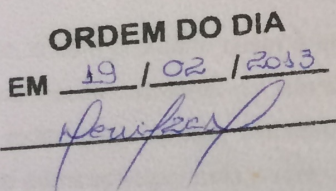 ORDEM DO DIA
EM 19 / 02 / 2013